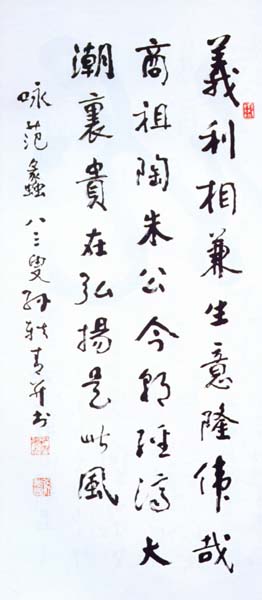 義利相兼生意隆偉哉
商祖陶朱公今朝經濟大
潮裏貴在弘揚是此風
咏范蠡 八三叟孙轶青并书